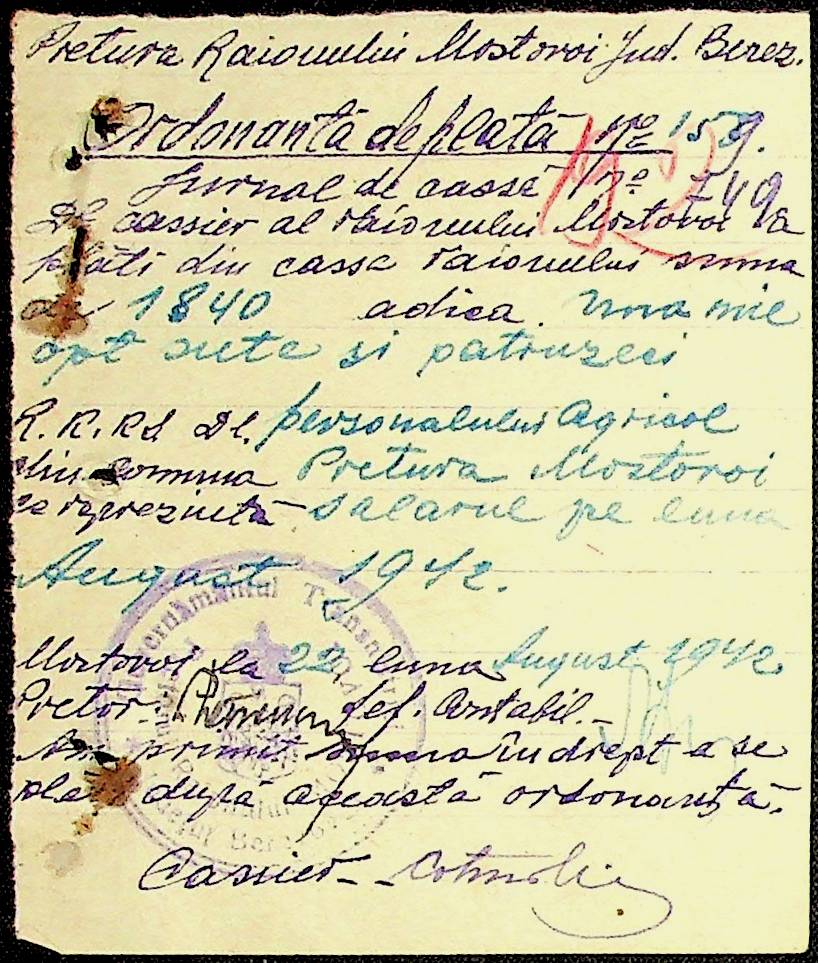 Pretura Raionului Mostovoi Jud. Berez.
Ordonantă de plată No 159.
Jurnal de cassă No 749
192
Dl cassier al raionului Mostovoi va
plăti din cassa raionului suma
de 1840 adica una mie
opt sute si patruzeci
Dl. personalului Agricol
din comuna Pretura Mostovoi
ce reprezintă salarul pe luna
August 1942.
Guvernământul Transnistriei
Mostovoi la 22 luna August 1942
Pretor. Șef. Contabil.
Am primit suma în drept a se
plati după această ordonanță.
Cassier